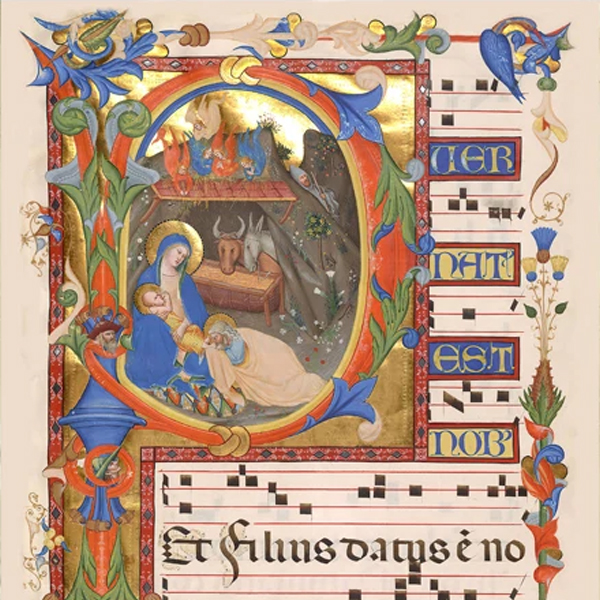 PUER
NAT'
EST
NOB'
Et Filius datus ē no